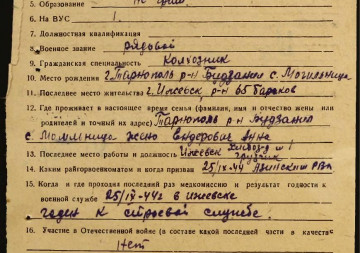 5. Образование
6. На ВУС 1.
7. Должностная квалификация
8. Военное звание рядовой
9. Гражданская специальность Колхозник
10. Место рождения г. Тарнополь р-н Будзанив с. Могильница
11. Последнее место жительства г. Ижевск, р-н 65 бараков
12. Где проживает в настоящее время семья (фамилия, имя и отчество жены или
родителей и точный их адрес) Тарнополь р-н Будзанив
с. Могильница жена Анна
13. Последнее место работы и должность Ижевск Хлебоз-д № 1
грузчик
14. Каким райгорвоенкоматом и когда призван 25/IV-44 Азинским РВК
15. Когда и где проходил последнюю медкомиссию и результат годности к
военной службе 25/IV-44г в Ижевске
годен к строевой службе.
16. Участие в Отечественной войне (в составе какой последней части в качестве
Нет